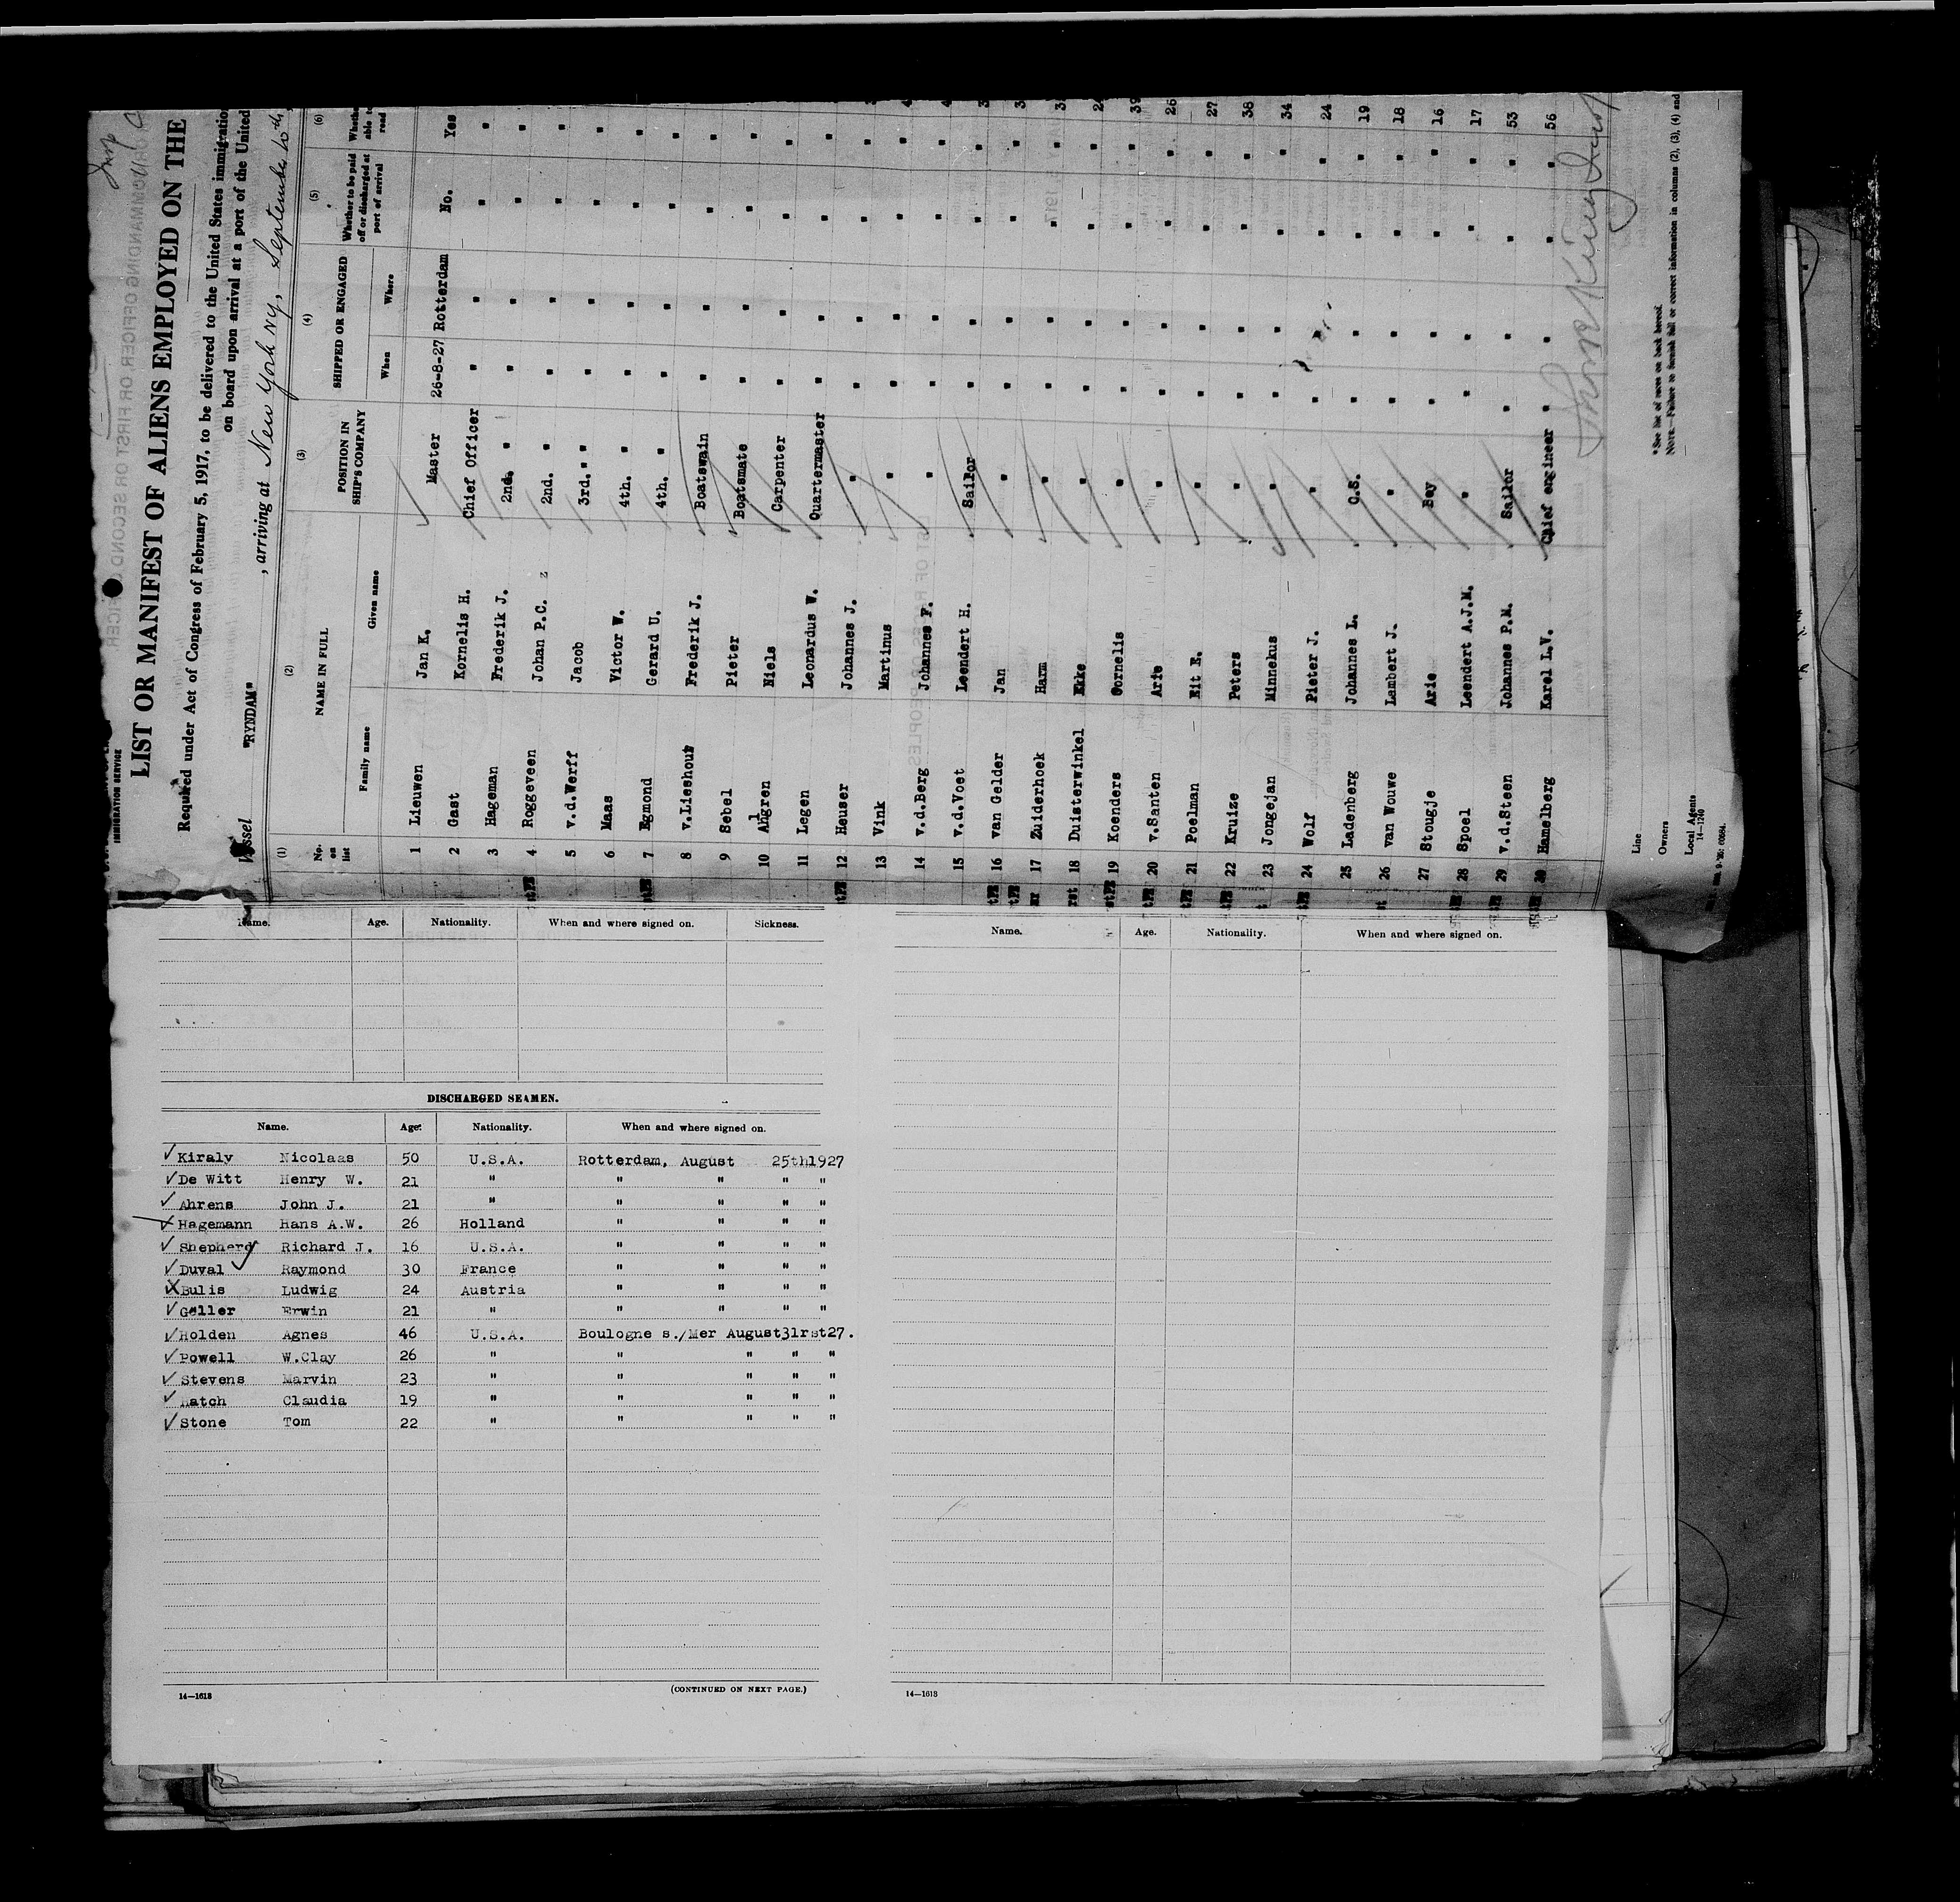 IMMIGRATION SERVICE
LIST OR MANIFEST OF ALIENS EMPLOYED ON THE
Required under Act of Congress of February 5, 1917, to be delivered to the United States immigration
on board upon arrival at a port of the United
Vessel "RYNDAM", arriving at New York NY, September 10th,
(1) (2) (3) (4) (5) (6)
No. on list NAME IN FULL POSITION IN SHIP'S COMPANY SHIPPED OR ENGAGED Whether to be paid off or discharged at port of arrival
Family name Given name When Where
1 Lieuwen Jan K. Master 26-8-27 Rotterdam No. Yes
2 Gast Kornelis H. Chief Officer " " " "
3 Hageman Frederik J. 2nd. " " " " "
4 Roggeveen Johan P.C. 2nd. " " " " "
5 v.d.Werff Jacob 3rd. " " " " "
6 Maas Victor W. 4th. " " " " "
7 Egmond Gerard U. 4th. " " " " "
8 v.Lieshout Frederik J. Boatswain " " " "
9 Sebel Pieter Boatsmate " " " "
10 Ahlgren Niels Carpenter " " " "
11 Legen Leonardus W. Quartermaster " " " "
12 Heuser Johannes J. " " " " "
13 Vink Martinus " " " " "
14 v.d.Berg Johannes F. " " " " "
15 v.d.Voet Leendert H. Sailor " " " "
16 van Gelder Jan " " " " "
17 Zuiderhoek Harm " " " " "
18 Duisterwinkel Ekke " " " " "
19 Koenders Cornelis " " " " " 39
20 v.Santen Arie " " " " " 26
21 Poelman Eit E. " " " " " 27
22 Kruize Peters " " " " " 38
23 Jongejan Minnekus " " " " " 34
24 Wolf Pieter J. " " " " " 24
25 Ladenberg Johannes L. O.S. " " " " 19
26 van Wouwe Lambert J. " " " " " 18
27 Stougje Arie Boy " " " " 16
28 Spoel Leendert A.J.M. " " " " " 17
29 v.d.Steen Johannes P.M. Sailor " " " " 53
30 Hamelberg Karel L.V. Chief engineer " " " " 56
Line
Owners
Local Agents
14—1240
*See list of races on back hereof.
NOTE.—Failure to furnish full or correct information in columns (2), (3), (4) and
Name. Age. Nationality. When and where signed on. Sickness.
DISCHARGED SEAMEN.
Name. Age. Nationality. When and where signed on.
Kiraly Nicolaas 50 U.S.A. Rotterdam, August 25th1927
De Witt Henry W. 21 " " " " "
Ahrens John J. 21 " " " " "
Hagemann Hans A.W. 26 Holland " " " "
Shepherd Richard J. 16 U.S.A. " " " "
Duval Raymond 30 France " " " "
Bulis Ludwig 24 Austria " " " "
Geller Erwin 21 " " " " "
Holden Agnes 46 U.S.A. Boulogne s./Mer August31rst27.
Powell W.Clay 26 " " " " "
Stevens Marvin 23 " " " " "
Hatch Claudia 19 " " " " "
Stone Tom 22 " " " " "
14—1618 (CONTINUED ON NEXT PAGE.)
Name. Age. Nationality. When and where signed on.
14—1618